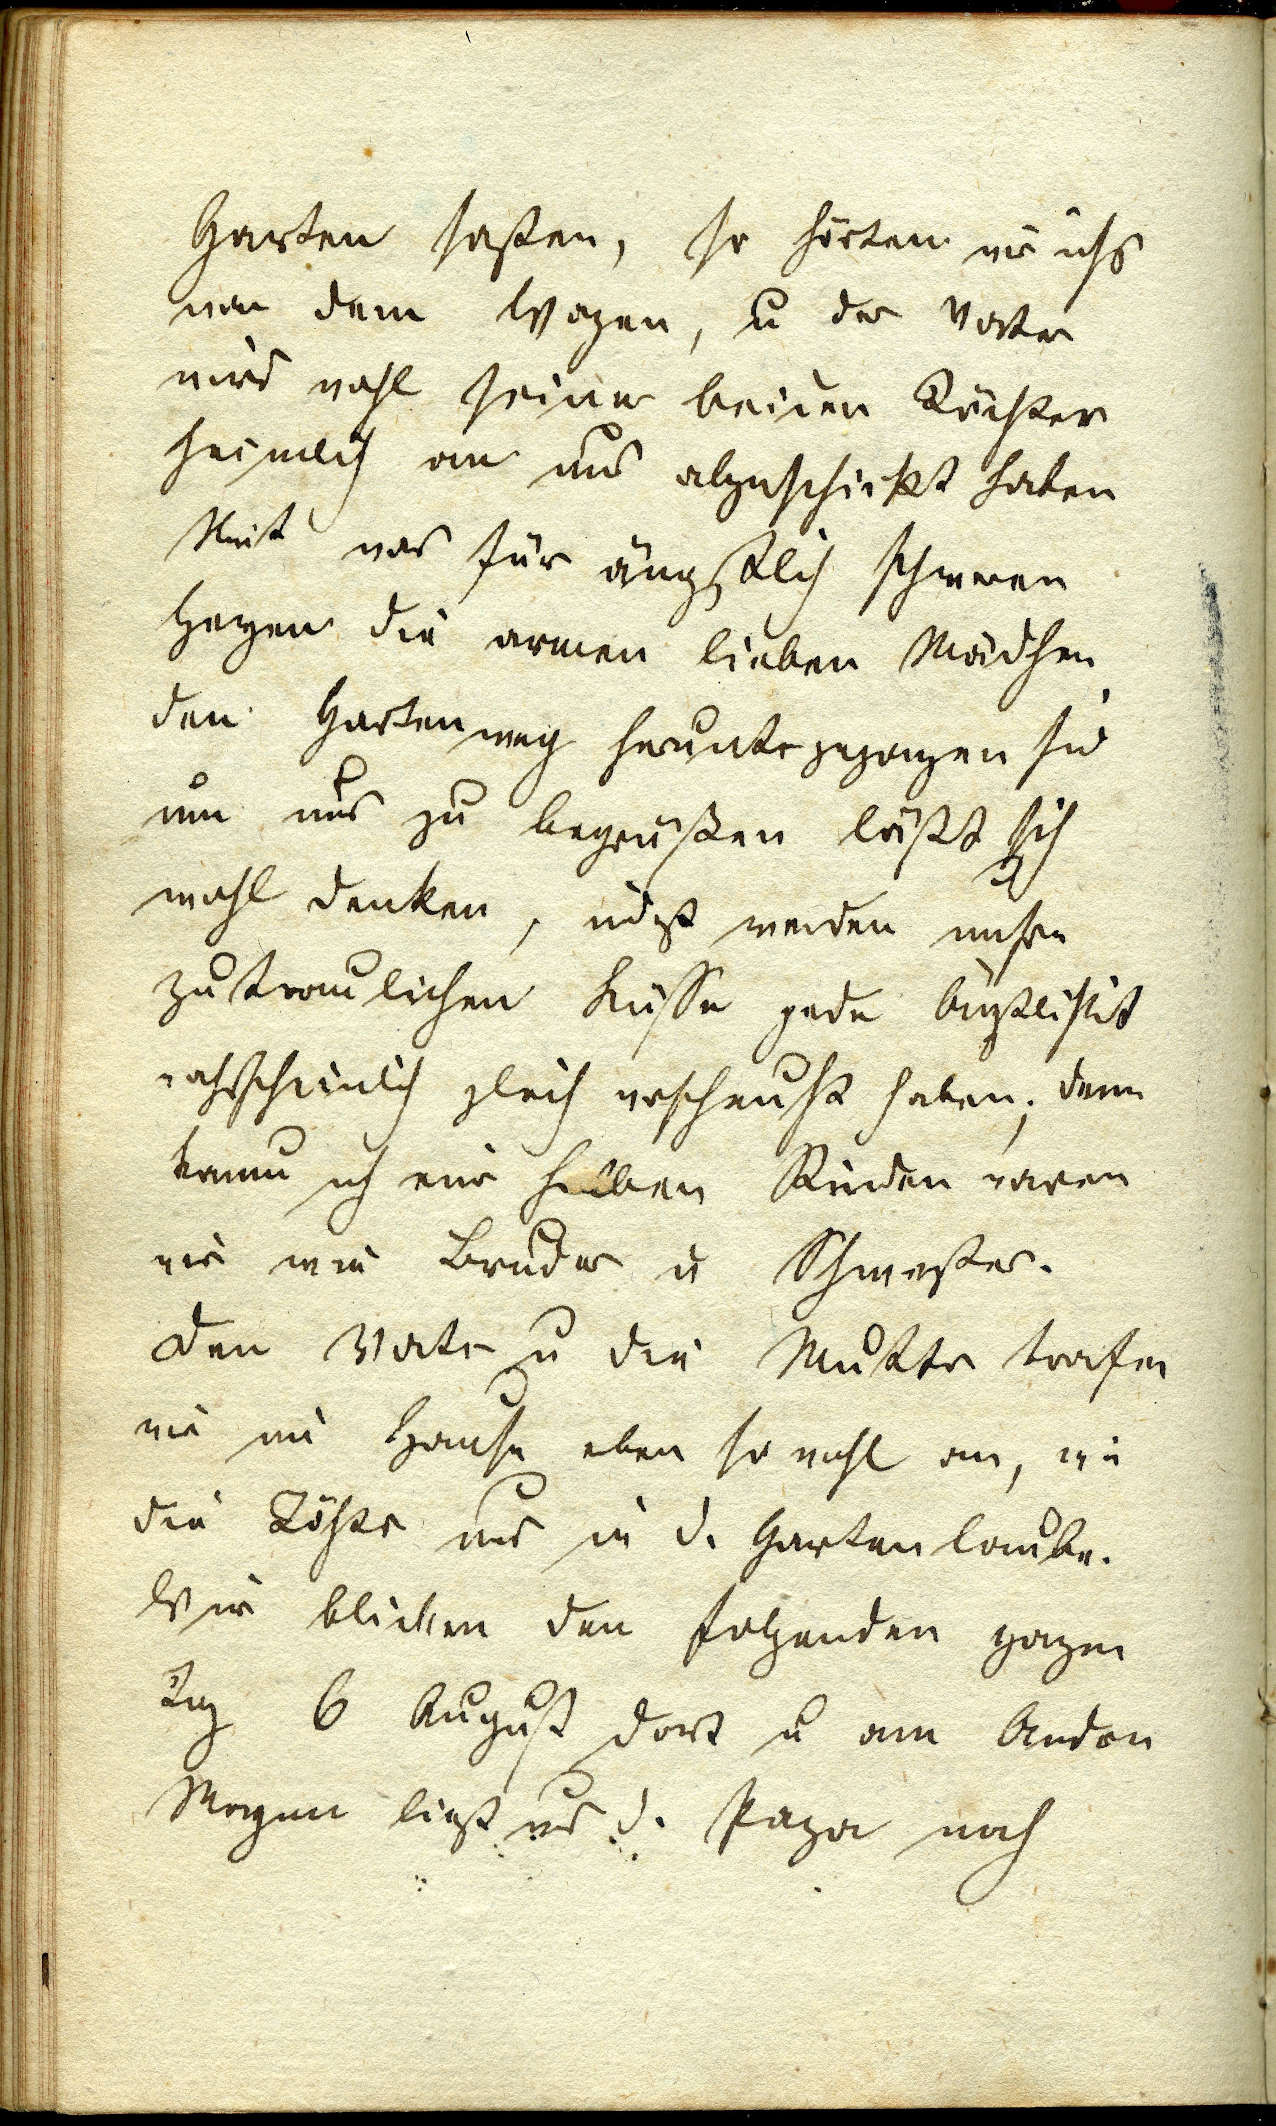 Garten saßen, so hörten wir nichs
von dem Wagen, u der Vater
wird wohl seine beiden Töchter
heimlich an uns abgeschickt haben
Mit was für ängstlich schweren
Herzen die armen lieben Mädchen
den Gartenweg heruntergegangen sind
um uns zu begrüßen läßt sich
wohl denken, indeß werden unsre
zutraulichen Küsse jede Ängstlichkeit
wahrscheinlich gleich verscheucht haben; denn
kaum ich eine halben Stunden waren
wir wie Bruder u Schwester.
Den Vater u die Mutter trafen
wir im Hause eben so wohl an, wie
die Töchter uns in d. Gartenlaube.
Wir blieben den folgenden ganzen
Tag 6 August dort u am Andern
Morgen ließ uns d. Papa nach